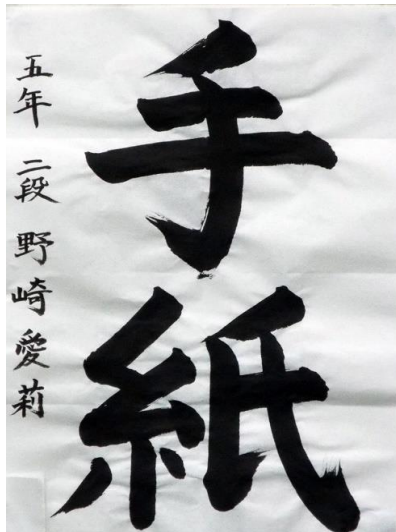 手紙
五年 二段 野崎愛莉